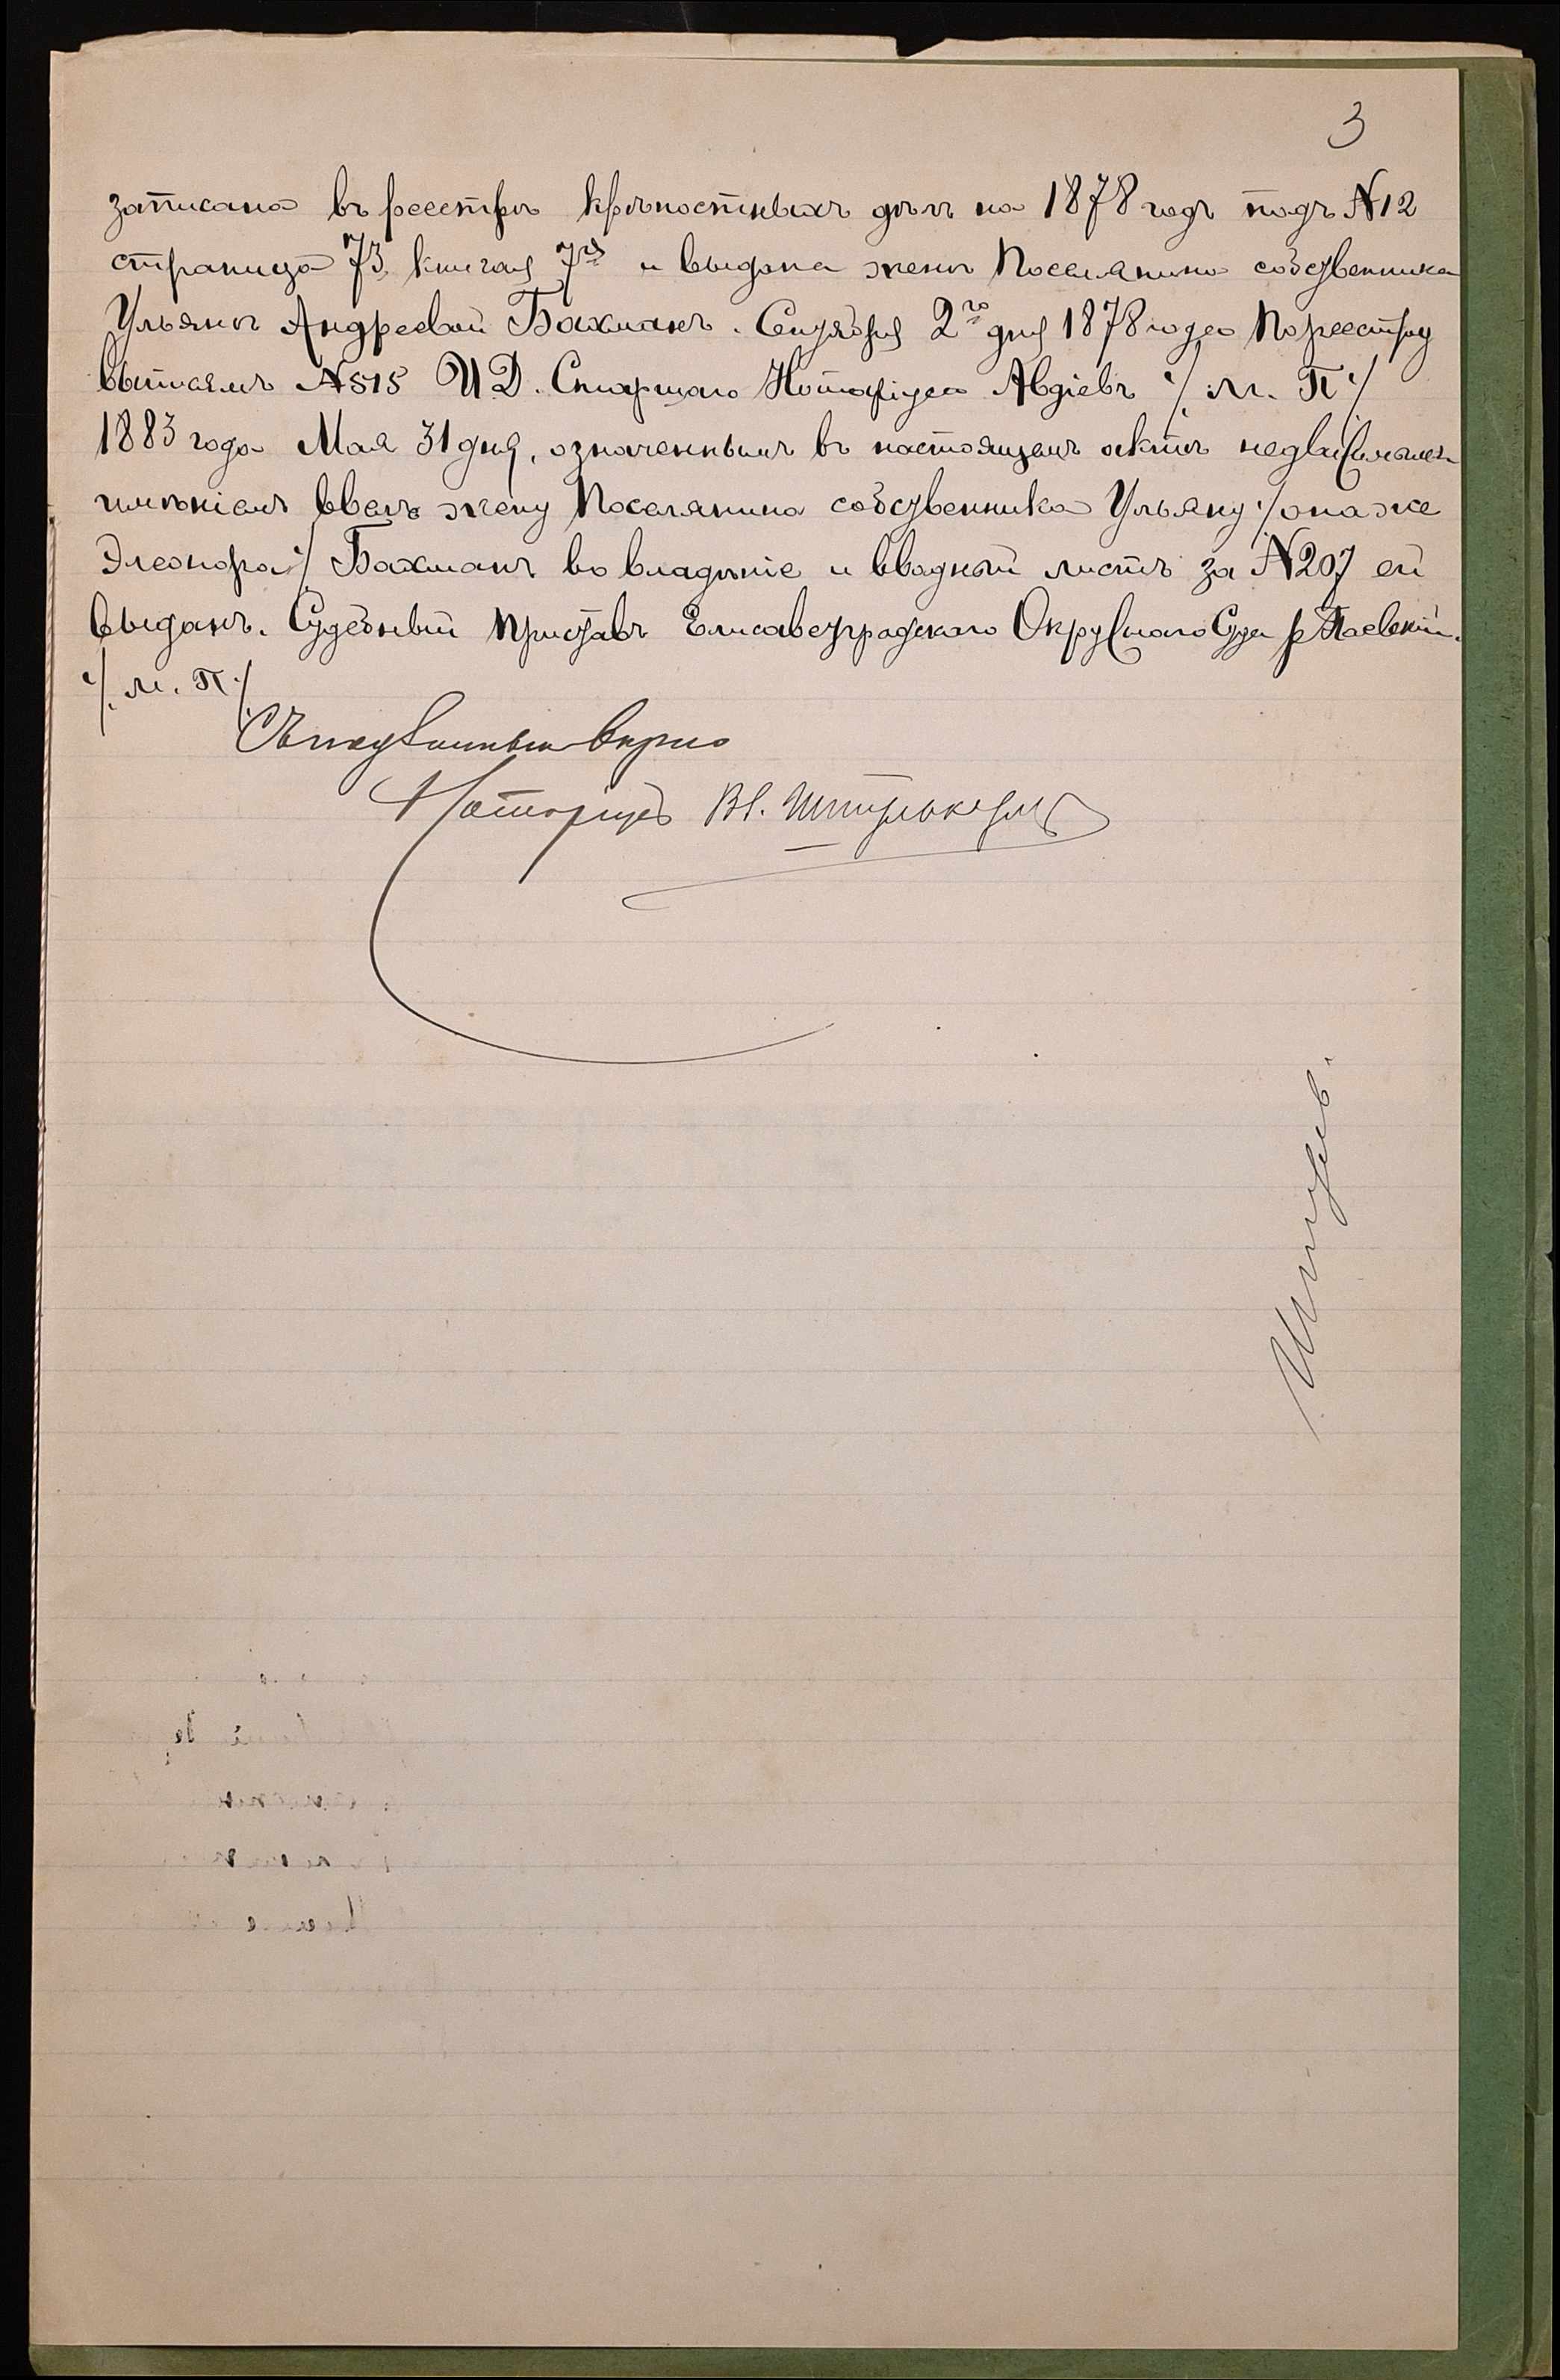 3
записана въ реестръ крѣпостныхъ дѣлъ на 1878 годъ подъ №12
страница 73, книгая 7ая и выдана женѣ Поселянина собственника
Ульянѣ Андреевой Бахманъ. Сентября 2го дня 1878 года По реестру
выписямъ №515 И.Д. Старшаго Нотаріуса Авдіевъ /м. П./
1883 года Мая 31 дня, означеннымъ въ настоящемъ актѣ недвижимымъ
имѣніемъ ввелъ жену Поселянина собственника Ульяну /она же
Элеонора/ Бахманъ во владѣніе и вводный листъ за №207 ей
выданъ. Судебный Приставъ Елисаветградскаго Окружнаго Суда
/м. П./
Съ подлиннымъ вѣрно
Нотаріусъ Вл.